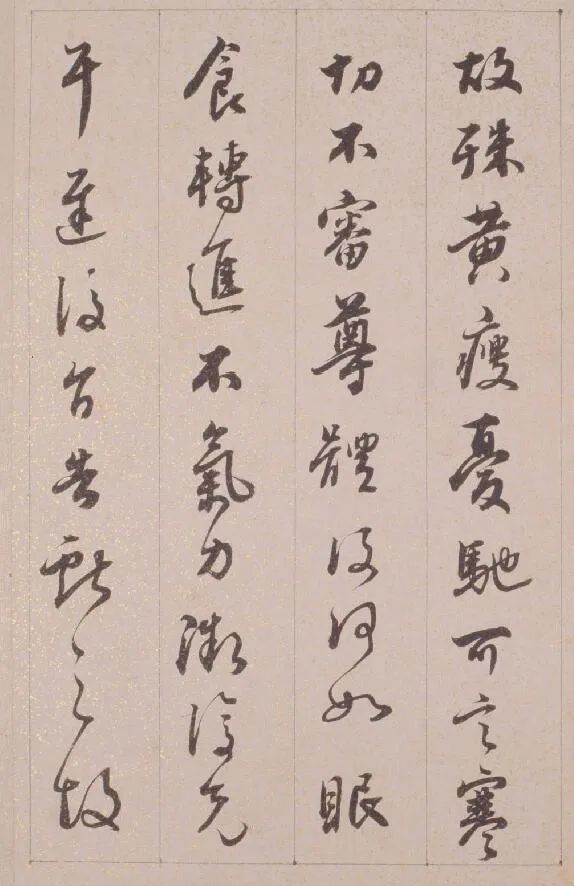 故殊黄瘦憂馳可言寒
切不審尊體復何如眠
食轉進不氣力漸復先
平復告獻之故